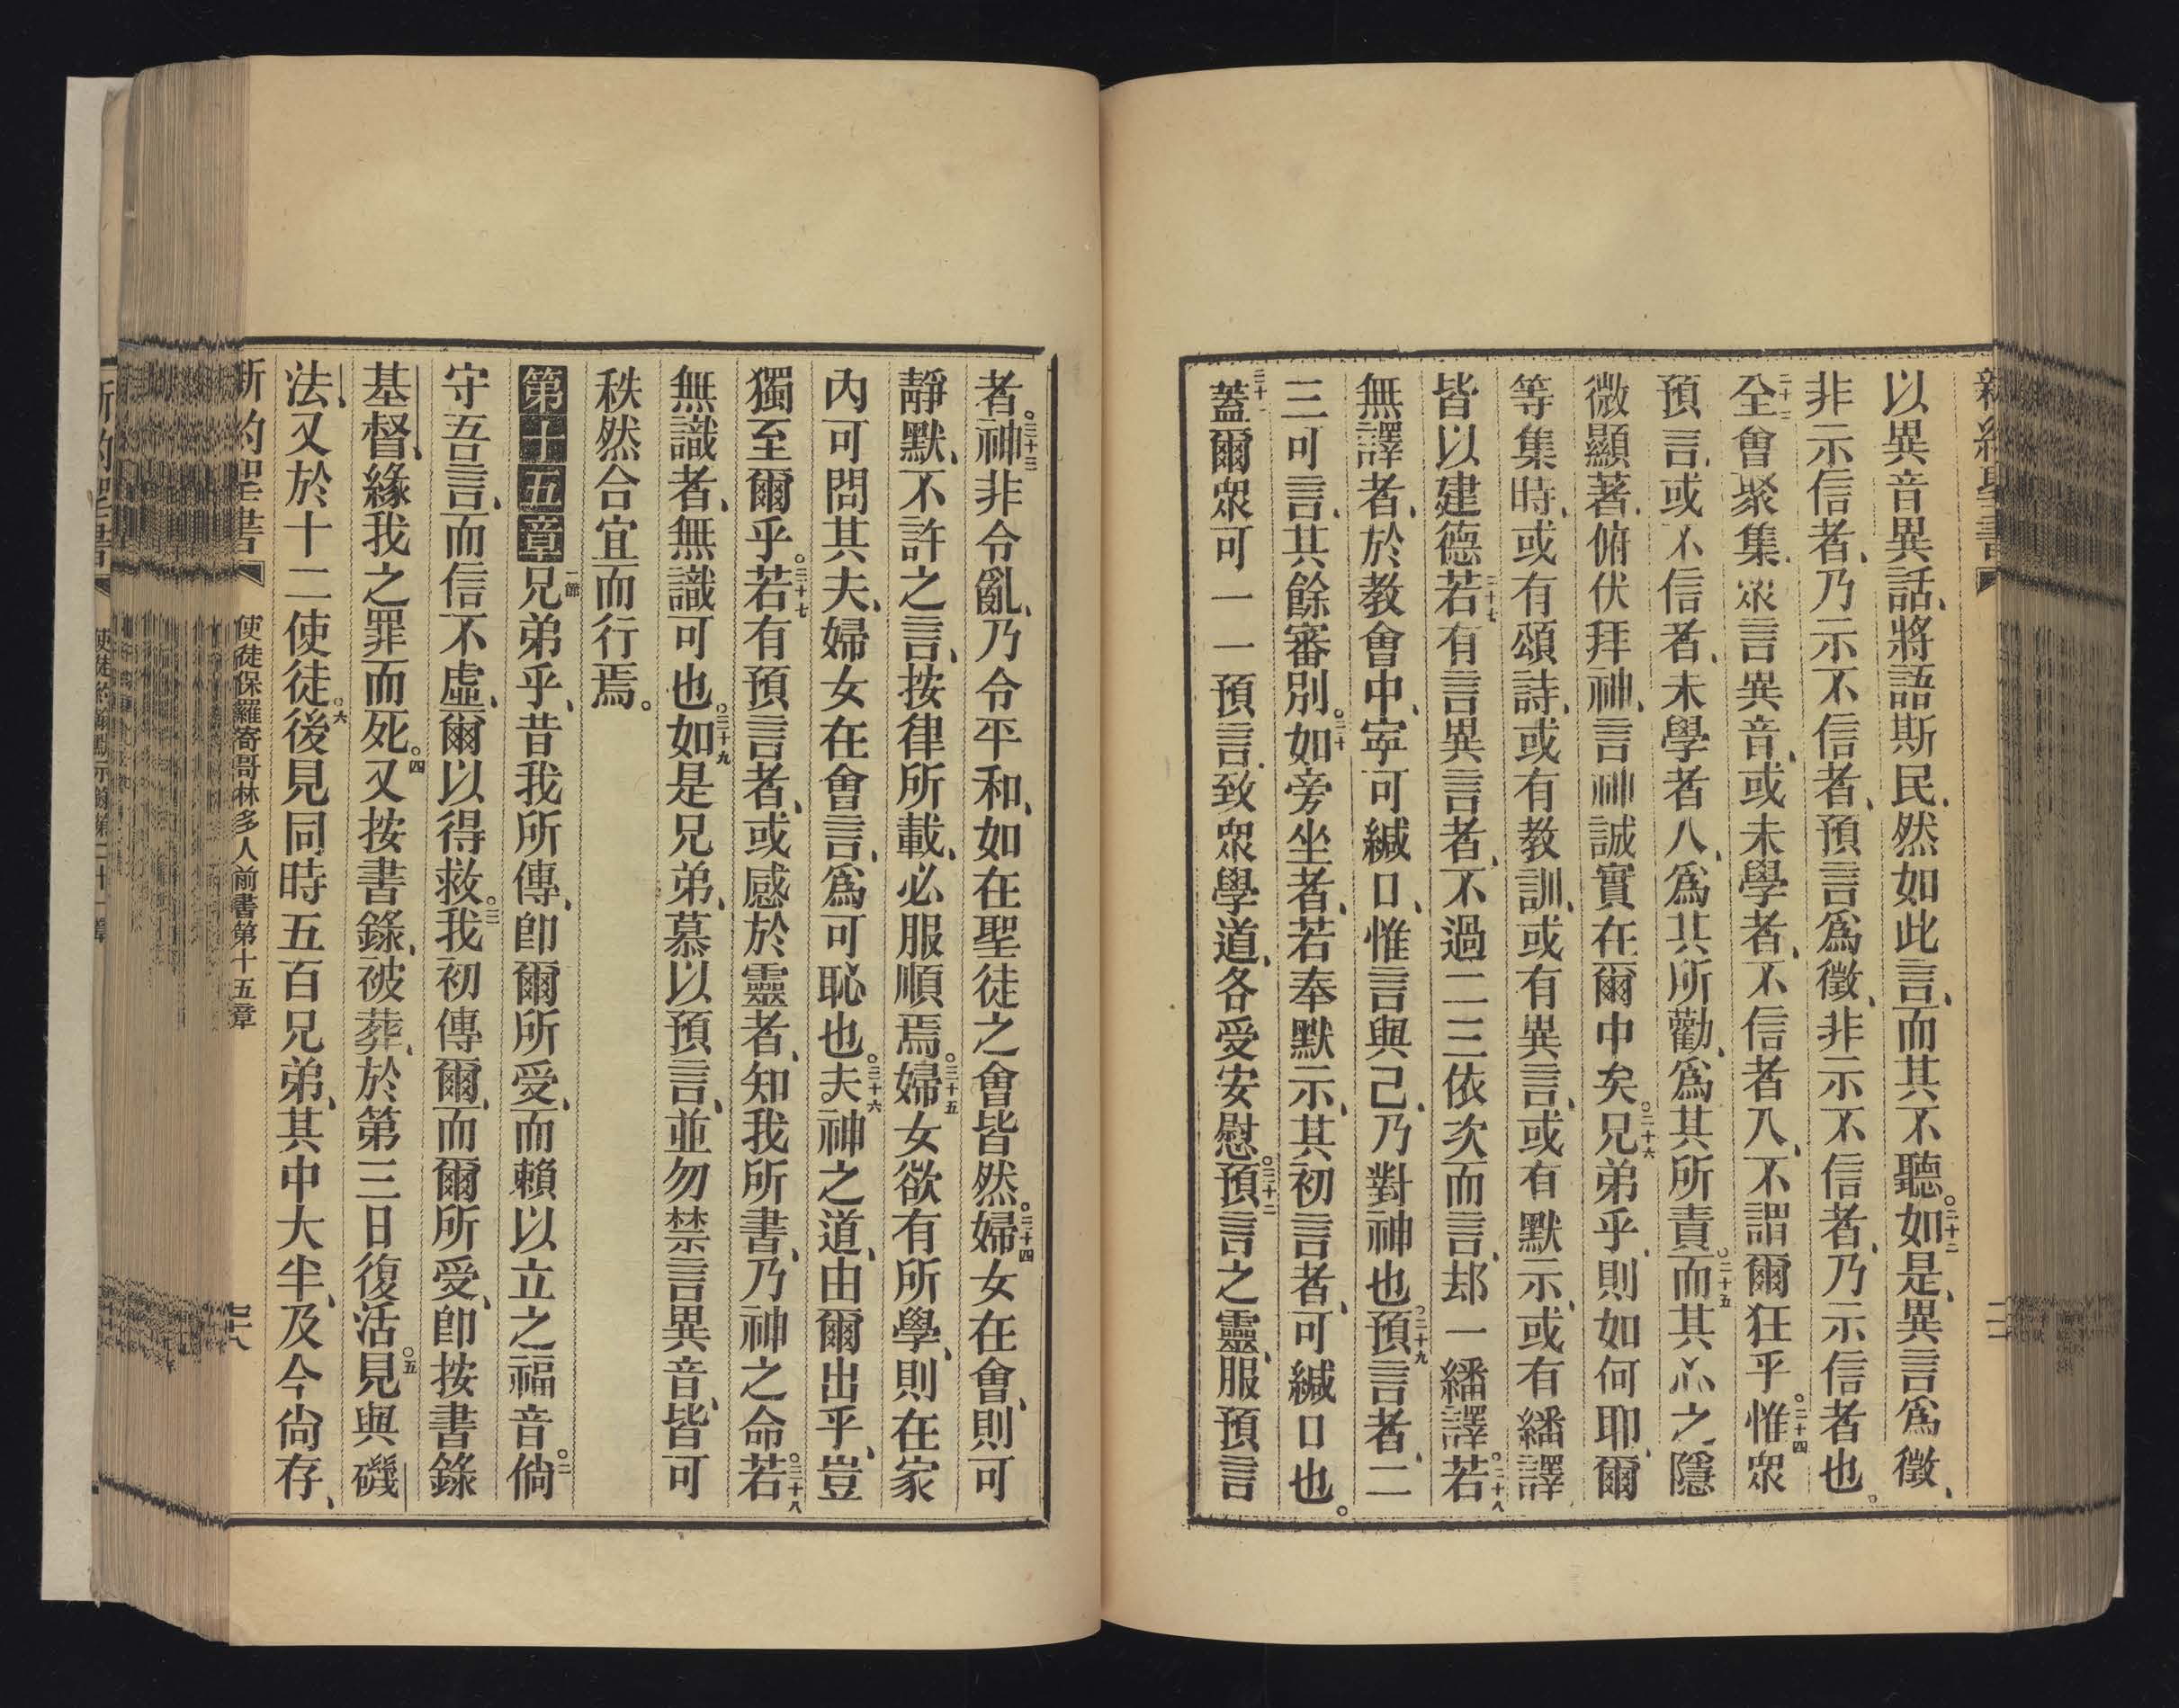 新約聖書
以異音異話、將語斯民、然如此言、而其不聽。二十二如是、異言爲徵、
非示信者、乃示不信者、預言爲徵、非示不信者、乃示信者也。
二十三全會聚集、眾言異音、或未學者、不信者入、不謂爾狂乎。二十四惟眾
預言、或不信者、未學者入、爲其所勸、爲其所責。二十五而其心之隱
微顯著、俯伏拜神、言神誠實在爾中矣。二十六兄弟乎、則如何耶、爾
等集時、或有頌詩、或有教訓、或有異言、或有默示、或有繙譯、
皆以建德。二十七若有言異言者、不過二三依次而言、却一繙譯。二十八若
無譯者、於教會中、寧可緘口、惟言與己、乃對神也。二十九預言者、二
三可言、其餘審別。三十如旁坐者、若奉默示、其初言者、可緘口也。
三十一蓋爾眾可一一預言、致眾學道、各受安慰。三十二預言之靈、服預言
者。三十三神非令亂、乃令平和、如在聖徒之會皆然。三十四婦女在會、則可
靜默、不許之言、按律所載、必服順焉。三十五婦女欲有所學、則在家
內可問其夫、婦女在會言、爲可恥也。三十六夫神之道、由爾出乎、豈
獨至爾乎。三十七若有預言者、或感於靈者、知我所書、乃神之命。三十八若
無識者、無識可也。三十九如是兄弟、慕以預言、並勿禁言異音、皆可
秩然合宜而行焉。
第十五章一節兄弟乎、昔我所傳、卽爾所受、而賴以立之福音。二倘
守吾言、而信不虛、爾以得救。三我初傳爾、而爾所受、卽按書錄
基督、緣我之罪而死。四又按書錄、被葬、於第三日復活。五見與磯
法、又於十二使徒。六後見同時五百兄弟、其中大半、及今尙存、
新約聖書 使徒保羅寄哥林多人前書第十五章